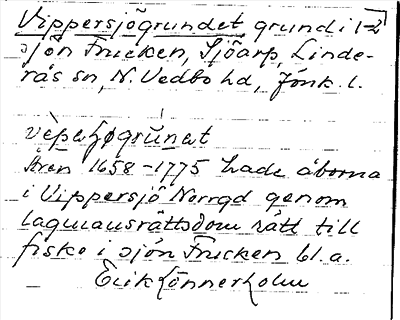 Vippersjögrundet grund i
sjön Fnicken, Sjöarp, Linde-
rås sn, N. Vedbo hd, Jönk. l.
Åren 1658-1775 hade åborna
i Vippersjö Norrgd genom
lagmansrättsdom rätt till
fiske i sjön Fnicken bl. a.
Erik Lönnerholm